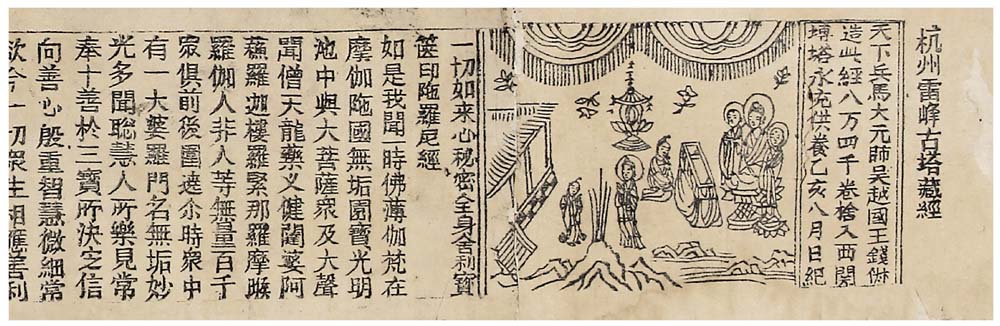 杭州雷峰古塔藏經
天下兵馬大元帥吳越國王錢俶
造此經八万四千卷捨入西関
塼塔永充供養乙亥八月日紀
一切如来心秘密全身舎利寳
篋印陁羅尼經
如是我聞一時佛薄伽梵在
摩伽陁國無垢園寳光明
池中與大菩薩衆及大聲
聞僧天龍藥叉健闥婆阿
蘓羅迦樓羅緊那羅摩睺
羅伽人非人等無量百千
衆俱前後圍遶尒時衆中
有一大婆羅門名無垢妙
光多聞聡慧人所樂見常
奉十善於三寳所決定信
向善心殷重智慧微細常
欲令一切衆生相應善利